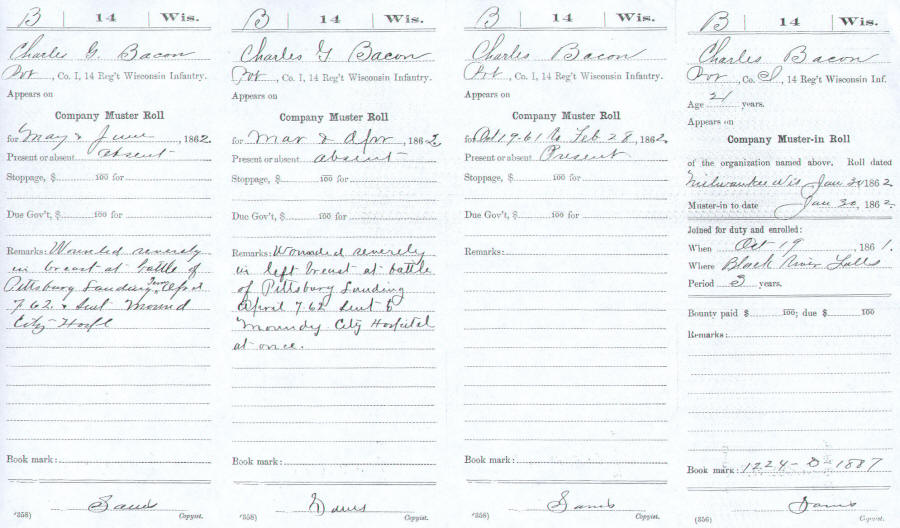 B | 14 | Wis.
Charles G. Bacon
Pvt, Co. I, 14 Reg't Wisconsin Infantry.
Appears on
Company Muster Roll
for May & June, 1862.
Present or absent absent
Stoppage, $ 100 for
Due Gov't, $ 100 for
Remarks: Wounded severely
in breast at battle of
Pittsburg Landing Tenn April
7 62. & sent Mound
City Hospl
Book mark:
(358) Copyist.
B | 14 | Wis.
Charles G Bacon
Pvt, Co. I, 14 Reg't Wisconsin Infantry.
Appears on
Company Muster Roll
for Mar & Apr, 1862.
Present or absent absent
Stoppage, $ 100 for
Due Gov't, $ 100 for
Remarks: Wounded severely
in left breast at battle
of Pittsburg Landing
April 7 62 sent to
Moundy City Hospital
at once.
Book mark:
(358) Copyist.
B | 14 | Wis.
Charles Bacon
Pvt, Co. I, 14 Reg't Wisconsin Infantry.
Appears on
Company Muster Roll
for Oct 19-61 to Feb 28, 1862.
Present or absent Present
Stoppage, $ 100 for
Due Gov't, $ 100 for
Remarks:
Book mark:
(358) Copyist.
B | 14 | Wis.
Charles Bacon
Pvt, Co. I, 14 Reg't Wisconsin Inf.
Age 21 years.
Appears on
Company Muster-in Roll
of the organization named above. Roll dated
Milwaukee Wis Jan 30 1862.
Muster-in to date Jan 30, 1862.
Joined for duty and enrolled:
When Oct 19, 1861.
Where Black River Falls
Period 3 years.
Bounty paid $ 100; due $ 100
Remarks:
Book mark: 1224-D-1887
(356) Copyist.